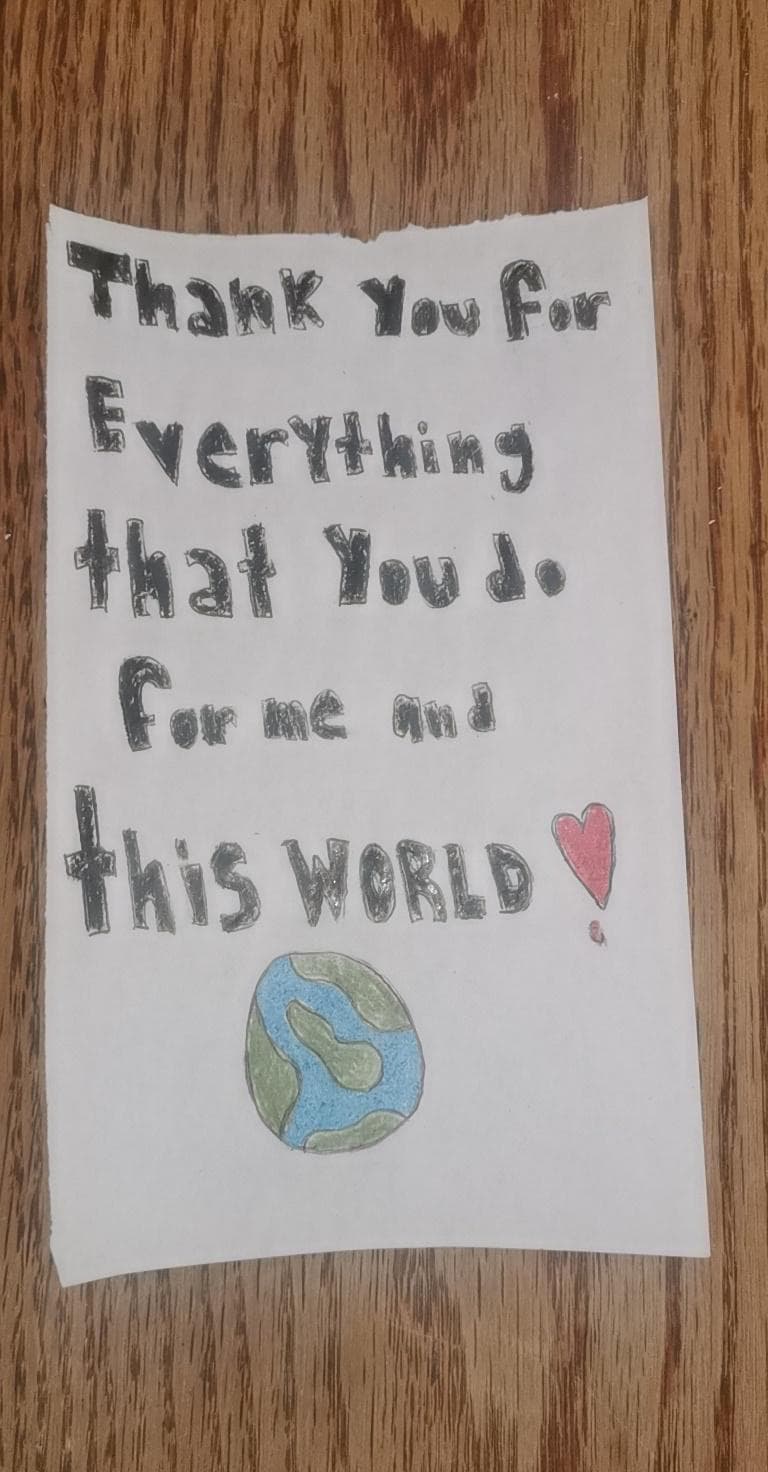 Thank You for
Everything
that You do
for me and
this WORLD!